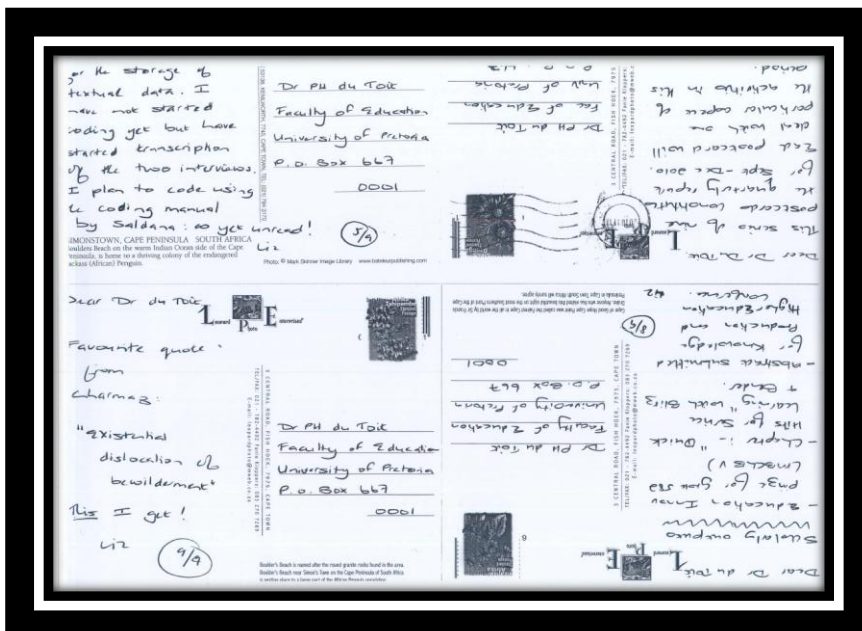 for the storage of
textual data. I
have not started
coding yet but have
started transcription
of the two interviews.
I plan to code using
the coding manual
by Saldana: as yet unread!
Liz
5/9
SIMONSTOWN, CAPE PENINSULA SOUTH AFRICA
Boulders Beach on the warm Indian Ocean side of the Cape
Peninsula, is home to a thriving colony of the endangered
Jackass (African) Penguin.
Dr PH du Toit
Faculty of Education
University of Pretoria
P.O. Box 667
0001
Photo: © Mark Skinner Image Library
Dear Dr Du Toit
This series of nine
postcards constitutes
the quarterly report
for Sept - Dec 2010.
Each postcard will
deal with one
particular aspect of
the activities in this
period.
Dr PH du Toit
Fac of Education
Univ of Pretoria
5 CENTRAL ROAD, FISH HOEK, 7975
Dear Dr du Toit
Favourite quote
from
Charmaz:
"existential
dislocation of
bewilderment"
This I get!
Liz
9/9
Leopard Photo Enterprises!
5 CENTRAL ROAD, FISH HOEK, 7975, CAPE TOWN
Dr PH du Toit
Faculty of Education
University of Pretoria
P.O. Box 667
0001
Boulder's Beach is named after the round granite rocks found in the area.
Boulder's Beach near Simon's Town on the Cape Peninsula of South Africa
Dear Dr du Toit
Scholarly outputs
- Education Innov
prize for
- Chapter :- "Quick
Hits for Service
Learning" with Blitz
+ Bender
- Abstract submitted
for Knowledge
Production and
Higher Education
Conference.
8/9
Dr PH du Toit
Faculty of Education
University of Pretoria
P.O. Box 667
0001
5 CENTRAL ROAD, FISH HOEK, 7975, CAPE TOWN